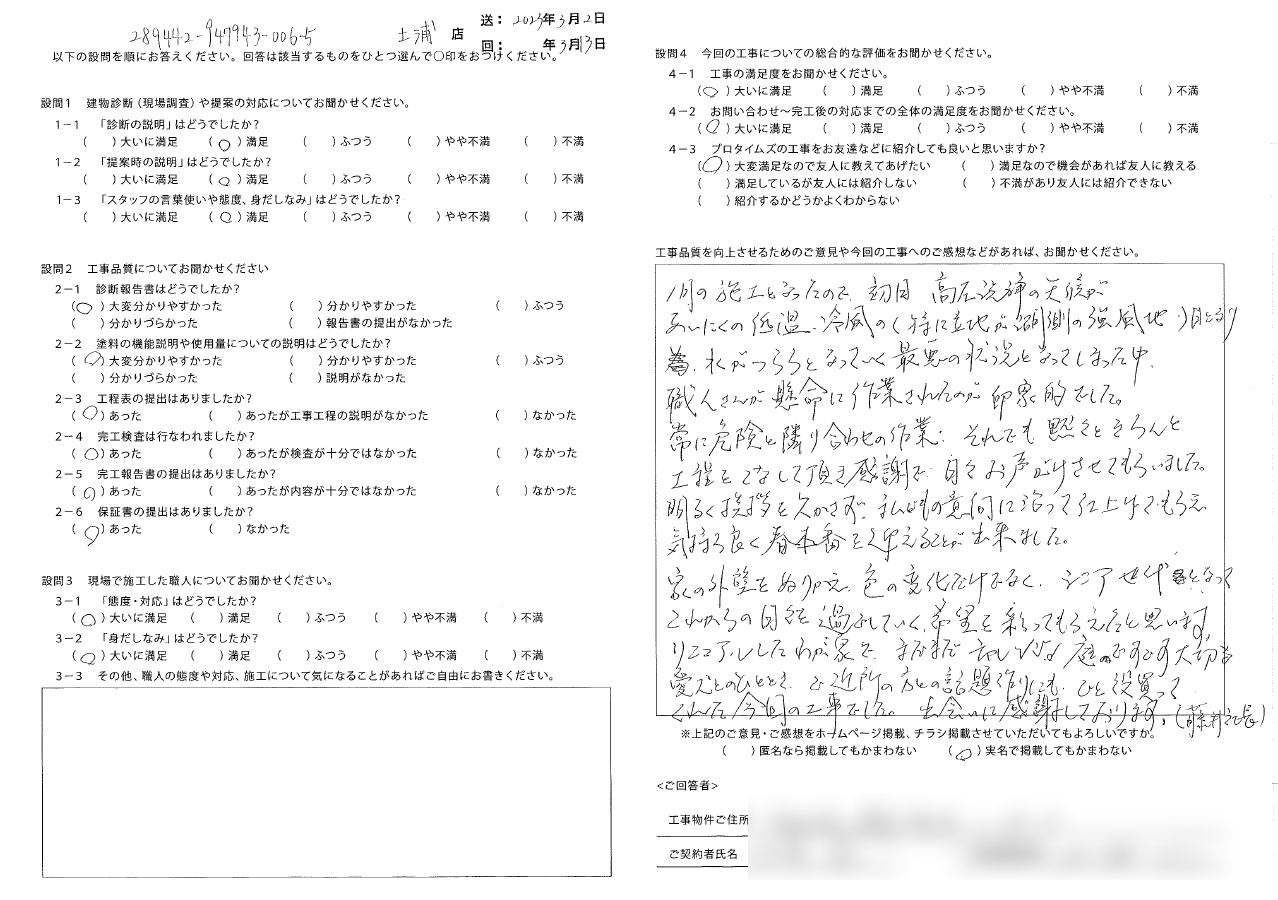 289442-947943-006-5 土浦 店
送: 2023年3月2日
回: 年3月13日
以下の設問を順にお答えください。回答は該当するものをひとつ選んで○印をおつけください。
設問1 建物診断(現場調査)や提案の対応についてお聞かせください。
1-1 「診断の説明」はどうでしたか?
( )大いに満足 (○)満足 ( )ふつう ( )やや不満 ( )不満
1-2 「提案時の説明」はどうでしたか?
( )大いに満足 (○)満足 ( )ふつう ( )やや不満 ( )不満
1-3 「スタッフの言葉使いや態度、身だしなみ」はどうでしたか?
( )大いに満足 (○)満足 ( )ふつう ( )やや不満 ( )不満
設問2 工事品質についてお聞かせください
2-1 診断報告書はどうでしたか?
(○)大変分かりやすかった ( )分かりやすかった ( )ふつう
( )分かりづらかった ( )報告書の提出がなかった
2-2 塗料の機能説明や使用量についての説明はどうでしたか?
(○)大変分かりやすかった ( )分かりやすかった ( )ふつう
( )分かりづらかった ( )説明がなかった
2-3 工程表の提出はありましたか?
(○)あった ( )あったが工事工程の説明がなかった ( )なかった
2-4 完工検査は行なわれましたか?
(○)あった ( )あったが検査が十分ではなかった ( )なかった
2-5 完工報告書の提出はありましたか?
(○)あった ( )あったが内容が十分ではなかった ( )なかった
2-6 保証書の提出はありましたか?
(○)あった ( )なかった
設問3 現場で施工した職人についてお聞かせください。
3-1 「態度・対応」はどうでしたか?
(○)大いに満足 ( )満足 ( )ふつう ( )やや不満 ( )不満
3-2 「身だしなみ」はどうでしたか?
(○)大いに満足 ( )満足 ( )ふつう ( )やや不満 ( )不満
3-3 その他、職人の態度や対応、施工について気になることがあればご自由にお書きください。
設問4 今回の工事についての総合的な評価をお聞かせください。
4-1 工事の満足度をお聞かせください。
(○)大いに満足 ( )満足 ( )ふつう ( )やや不満 ( )不満
4-2 お問い合わせ~完工後の対応までの全体の満足度をお聞かせください。
(○)大いに満足 ( )満足 ( )ふつう ( )やや不満 ( )不満
4-3 プロタイムズの工事をお友達などに紹介しても良いと思いますか?
(○)大変満足なので友人に教えてあげたい ( )満足なので機会があれば友人に教える
( )満足しているが友人には紹介しない ( )不満があり友人には紹介できない
( )紹介するかどうかよくわからない
工事品質を向上させるためのご意見や今回の工事へのご感想などがあれば、お聞かせください。
1月の施工となったので、初日 高圧洗浄の天候が
あいにくの低温、冷風の(特に立地が湖側の強風地)日となり
為、水がつららとなっていく最悪の状況となってしまった中、
職人さんが懸命に作業されたのが印象的でした。
常に危険と隣り合わせの作業: それでも黙々ときちんと
工程をこなして頂き感謝で、日々お声がけさせてもらいました。
明るく挨拶を欠かさず、私どもの意向に沿って仕上げてもらえ
気持ち良く春本番を迎えることが出来ました。
家の外壁をぬりかえ、色の変化だけでなく、シニア世代となって
これからの日々を過ごしていく、希望を彩ってもらえたと思います。
リニューアルしたわが家で、まだまだ 庭のすみずみ大切な
愛犬とのひととき、ご近所の方との話題作りにも、ひと役買って
くれた今回の工事でした。出会いに感謝しております。(藤井社長)
※上記のご意見・ご感想をホームページ掲載、チラシ掲載させていただいてもよろしいですか。
( )匿名なら掲載してもかまわない (○)実名で掲載してもかまわない
<ご回答者>
工事物件ご住所
ご契約者氏名